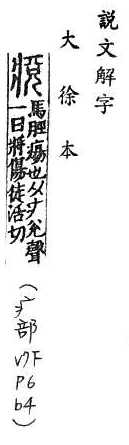 説文解字
大徐本
痥
馬脛瘍也从疒兌聲
一曰將傷徒活切
(疒部 7下 P6 b4)